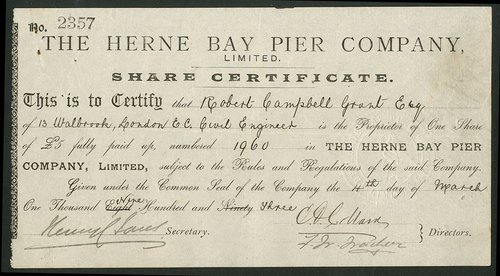 No. 2357
THE HERNE BAY PIER COMPANY,
LIMITED.
SHARE CERTIFICATE.
This is to Certify that Robert Campbell Grant Esq
of 13 Walbrook, London E.C. Civil Engineer is the Proprietor of One Share
of £5 fully paid up, numbered 1960 in THE HERNE BAY PIER
COMPANY, LIMITED, subject to the Rules and Regulations of the said Company.
Given under the Common Seal of the Company the 4th day of March
One Thousand Eight Nine Hundred and Ninety three
Secretary.
Directors.